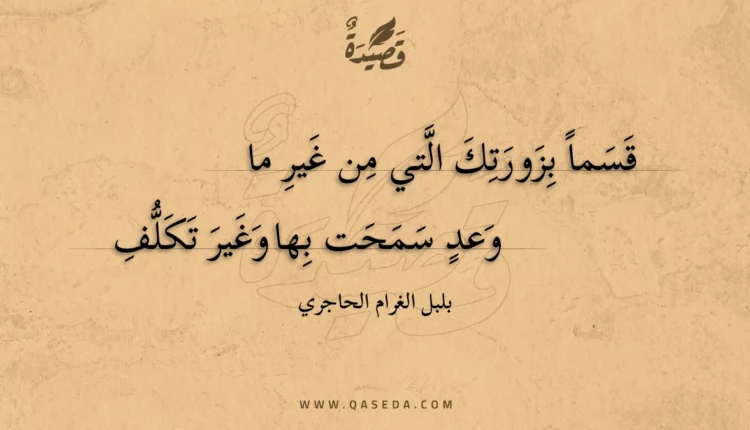 قَصِيدَةٌ
قَسَماً بِزَورَتِكَ الَّتي مِن غَيرِ ما
وَعدٍ سَمَحَت بِها وَغَيرَ تَكَلُّفِ
بلبل الغرام الحاجري
WWW.QASEDA.COM